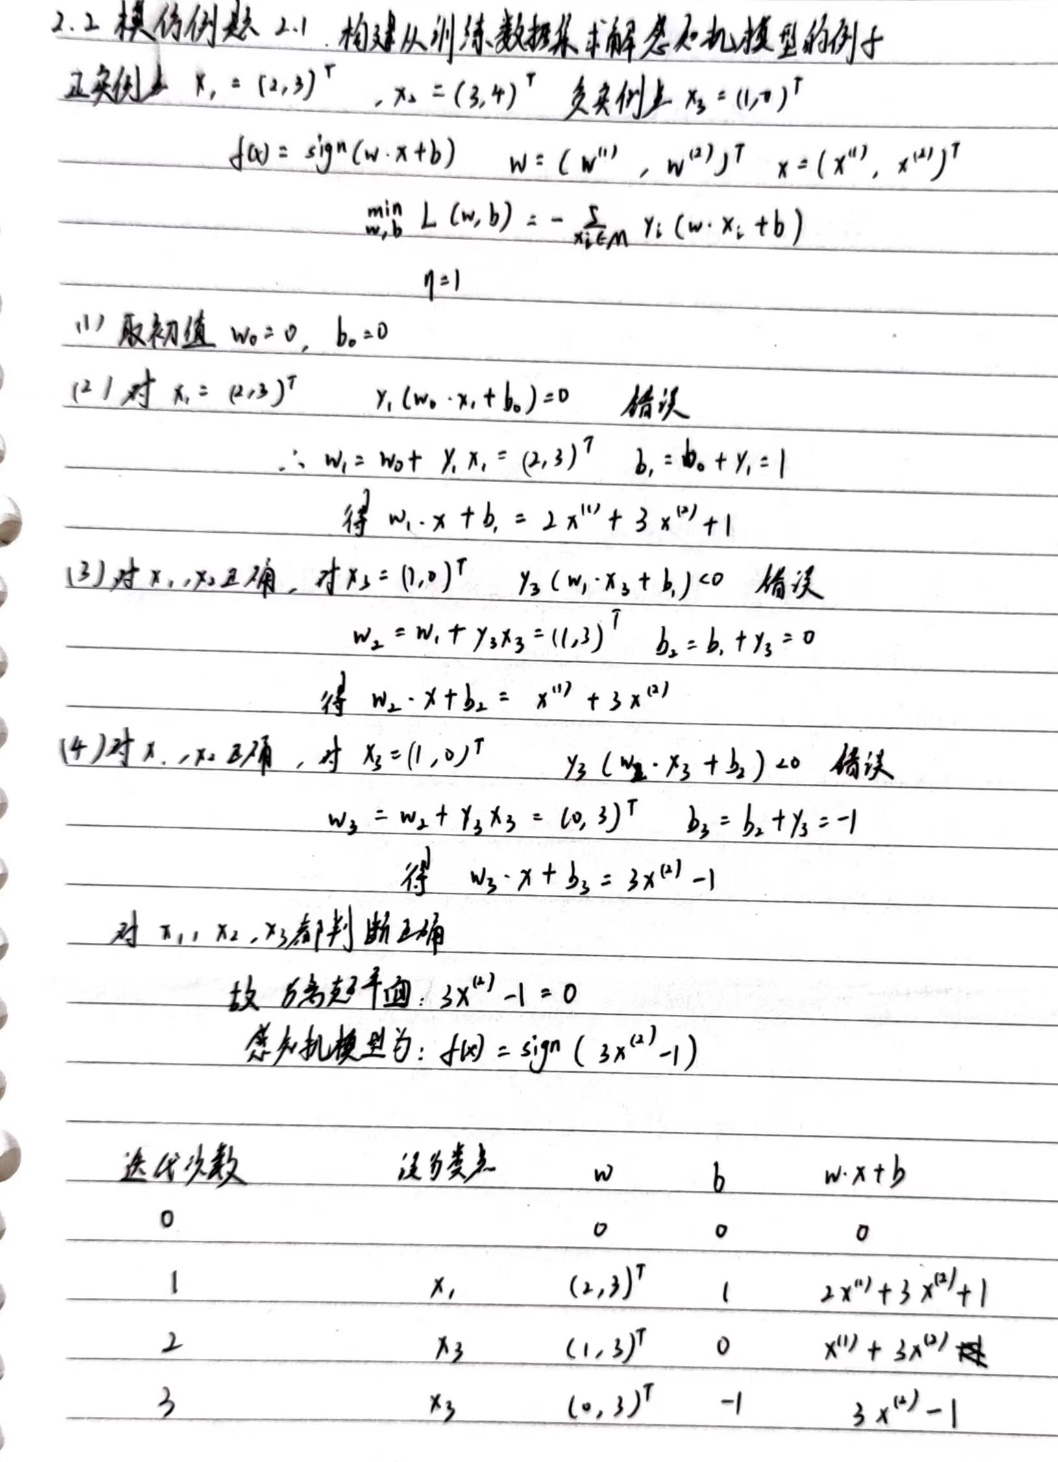 2.2 模仿例题 2.1. 构建从训练数据集求解感知机模型的例子
正实例点 x₁ = (2,3)ᵀ , x₂ = (3,4)ᵀ 负实例点 x₃ = (1,0)ᵀ
f(x) = sign(w·x+b) w = (w⁽¹⁾, w⁽²⁾)ᵀ x = (x⁽¹⁾, x⁽²⁾)ᵀ
min w,b L(w,b) = - Σ xᵢ∈M yᵢ(w·xᵢ+b)
η=1
(1) 取初值 w₀=0, b₀=0
(2) 对 x₁ = (2,3)ᵀ y₁(w₀·x₁+b₀)=0 错误
∴ w₁ = w₀ + y₁x₁ = (2,3)ᵀ b₁ = b₀ + y₁ = 1
得 w₁·x + b₁ = 2x⁽¹⁾ + 3x⁽²⁾ + 1
(3) 对 x₁,x₂正确, 对x₃ = (1,0)ᵀ y₃(w₁·x₃+b₁)<0 错误
w₂ = w₁ + y₃x₃ = (1,3)ᵀ b₂ = b₁ + y₃ = 0
得 w₂·x + b₂ = x⁽¹⁾ + 3x⁽²⁾
(4) 对 x₁,x₂正确, 对 x₃ = (1,0)ᵀ y₃(w₂·x₃+b₂)<0 错误
w₃ = w₂ + y₃x₃ = (0,3)ᵀ b₃ = b₂ + y₃ = -1
得 w₃·x + b₃ = 3x⁽²⁾ - 1
对 x₁, x₂, x₃都判断正确
故 分离超平面: 3x⁽²⁾ - 1 = 0
感知机模型为: f(x) = sign(3x⁽²⁾-1)
迭代次数 误分类点 w b w·x+b
0 0 0 0
1 x₁ (2,3)ᵀ 1 2x⁽¹⁾+3x⁽²⁾+1
2 x₃ (1,3)ᵀ 0 x⁽¹⁾+3x⁽²⁾
3 x₃ (0,3)ᵀ -1 3x⁽²⁾-1